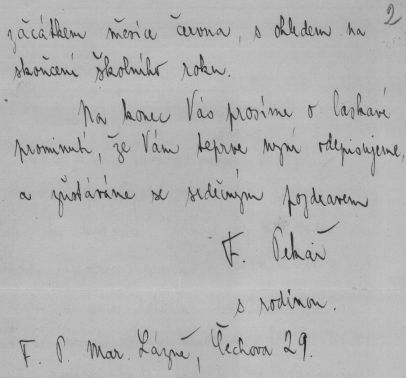 2
začátkem měsíce června, s ohledem na
skončení školního roku.
Na konec Vás prosíme o laskavé
prominutí, že Vám teprve nyní odepisujeme,
a zůstáváme se srdečným pozdravem
F. Pekař
s rodinou.
F. P. Mar. Lázně, Čechova 29.